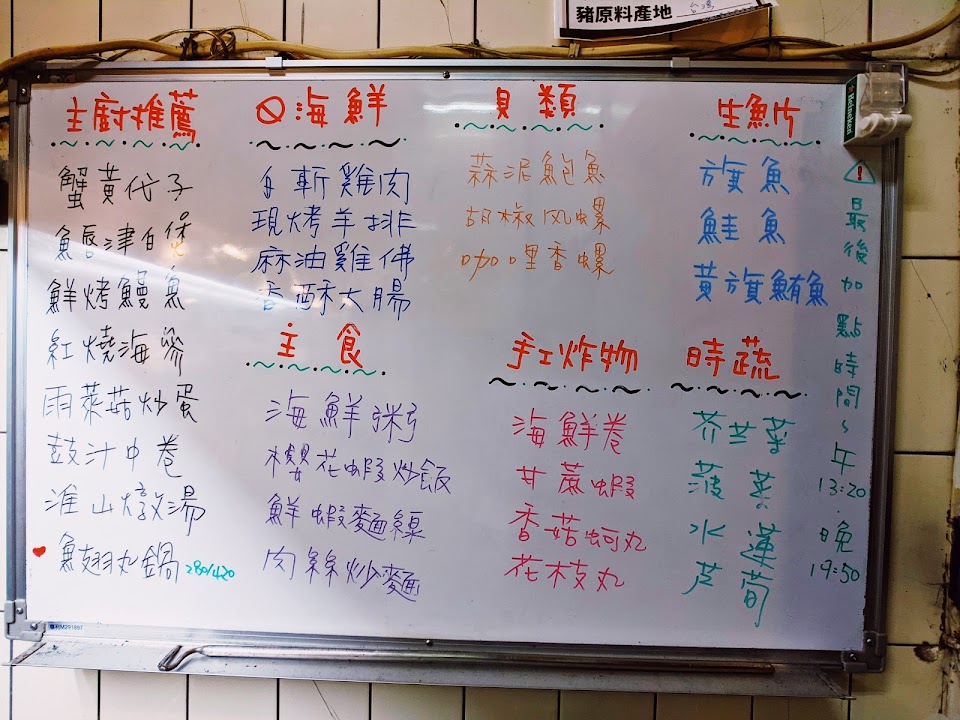 豬原料產地 台灣
Heineken
主廚推薦
蟹黃代子
魚唇津白煲
鮮烤鰻魚
紅燒海參
雨菜菇炒蛋
鼓汁中卷
淮山燉湯
魚翅丸鍋 280/420
海鮮
白斬雞肉
現烤羊排
麻油雞佛
香酥大腸
主食
海鮮粥
櫻花蝦炒飯
鮮蝦麵線
肉絲炒麵
貝類
蒜泥鮑魚
胡椒风螺
咖哩香螺
手工炸物
海鮮卷
甘蔗蝦
香菇蚵丸
花枝丸
生魚片
旗魚
鮭魚
黃旗鮪魚
時蔬
芥兰菜
菠菜
水蓮
芦筍
最後加點時間~午13:20.晚19:50